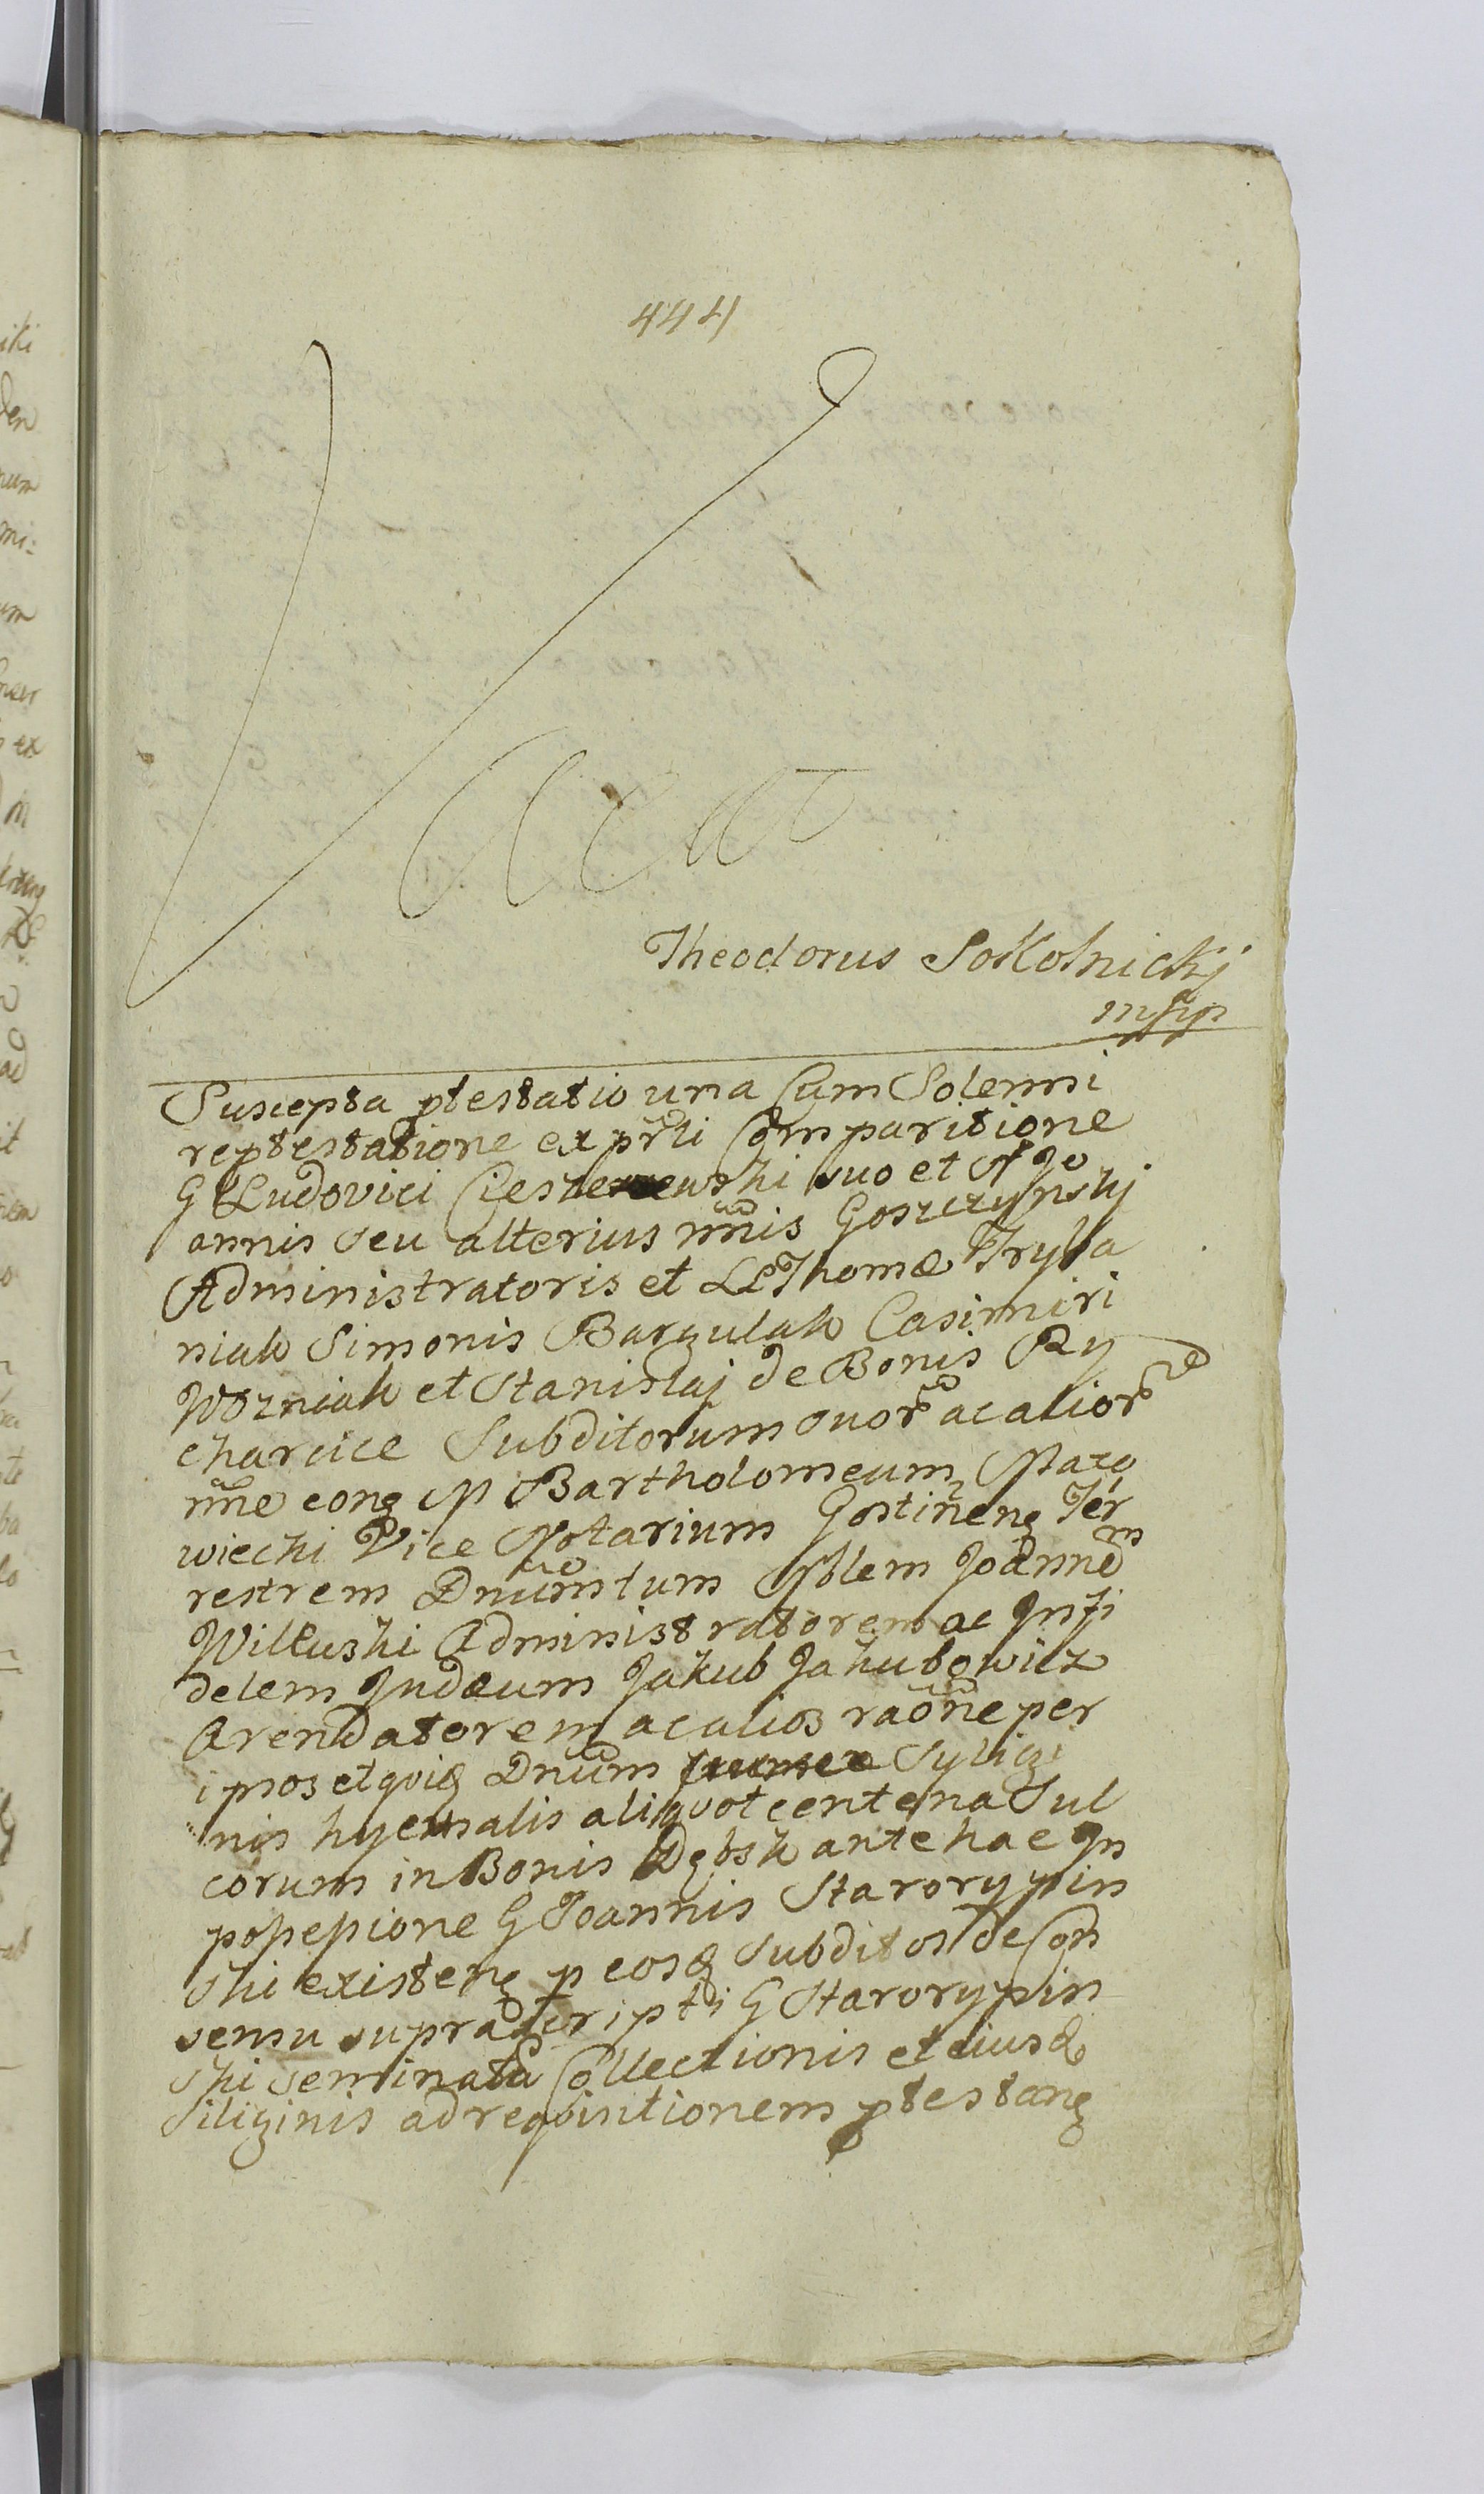 444
Theodorus Sokolnickj
mpp
Suscepta ptestatio una Cum Solenni
reptestatione ex prti Comparitione
G Ludovici suo et N Jo
annis seu alterius nnis Goszczynskj
Administratoris et LL Thomæ Tryla
niak Simonis Bargulak Casimiri
Wozniak et Stanislaj de Bonis Ry
charcice Subditorum suor ac alior
nne cong M Bartholomeum Maro
wiecki Vice Notarium Gostineng Ter
restrem Dnum tum Nblem Joannem
Willuski Administratorem ac Infi
delem Judæum Jakub Jakubowicz
Arendatorem ac alios raone per
ipsos et qviq Dnum Syligi
nis hyemalis aliqvot centena Sul
corum in Bonis Dębsk ante hac In
possessione G Joannis Starorypin
ski existeng p eosq Subditos de Con
sensu suprascripti G Starorypin
ski seminata Collectionis et eiusd
Siliginis ad reqvisitionem ptestang